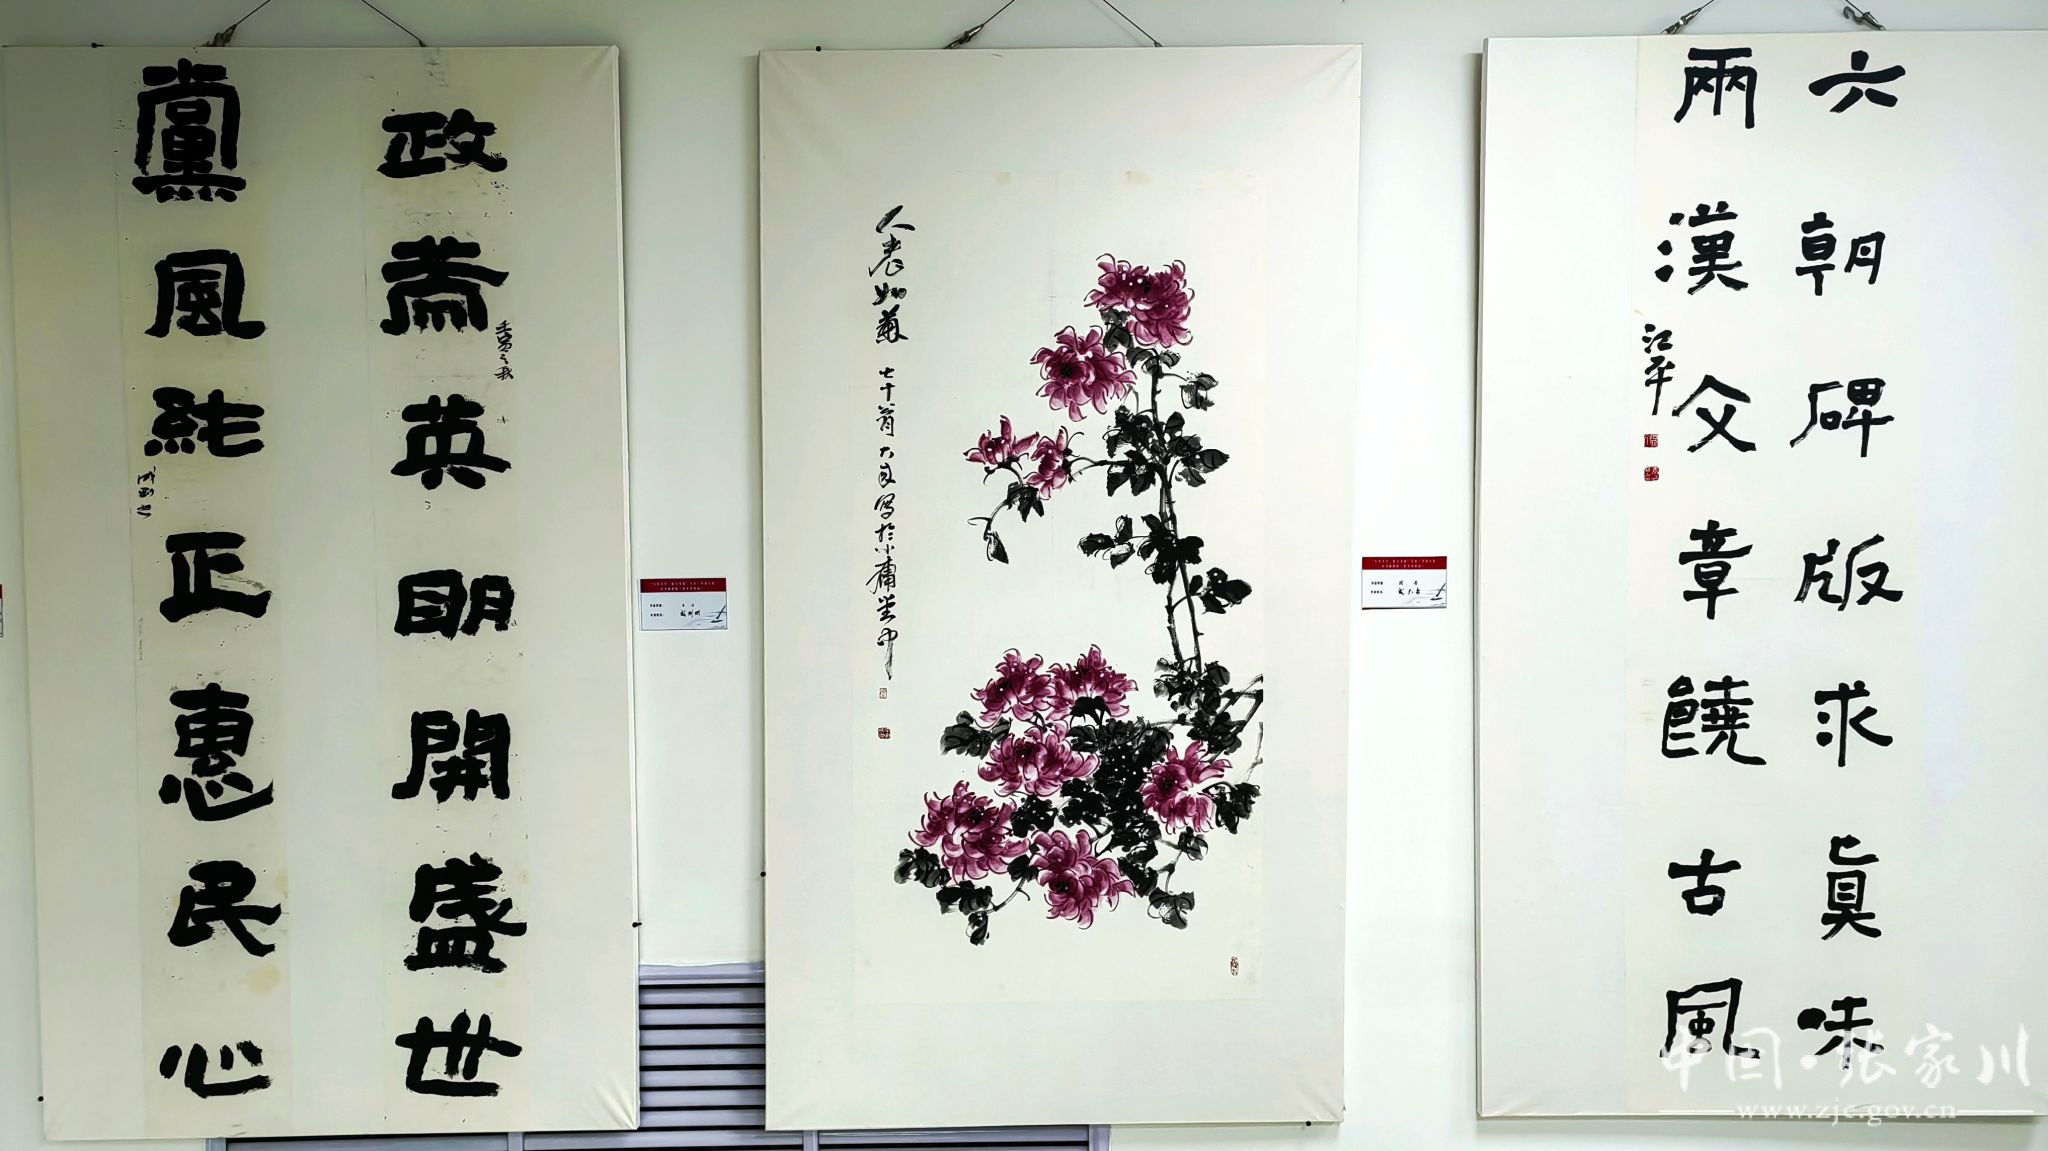 政肅英明開盛世
黨風純正惠民心
人老如菊
七十翁大成写於小庸堂中
六朝碑版求真味
兩漢文章饒古風
江平
中国·张家川
www.zjc.gov.cn